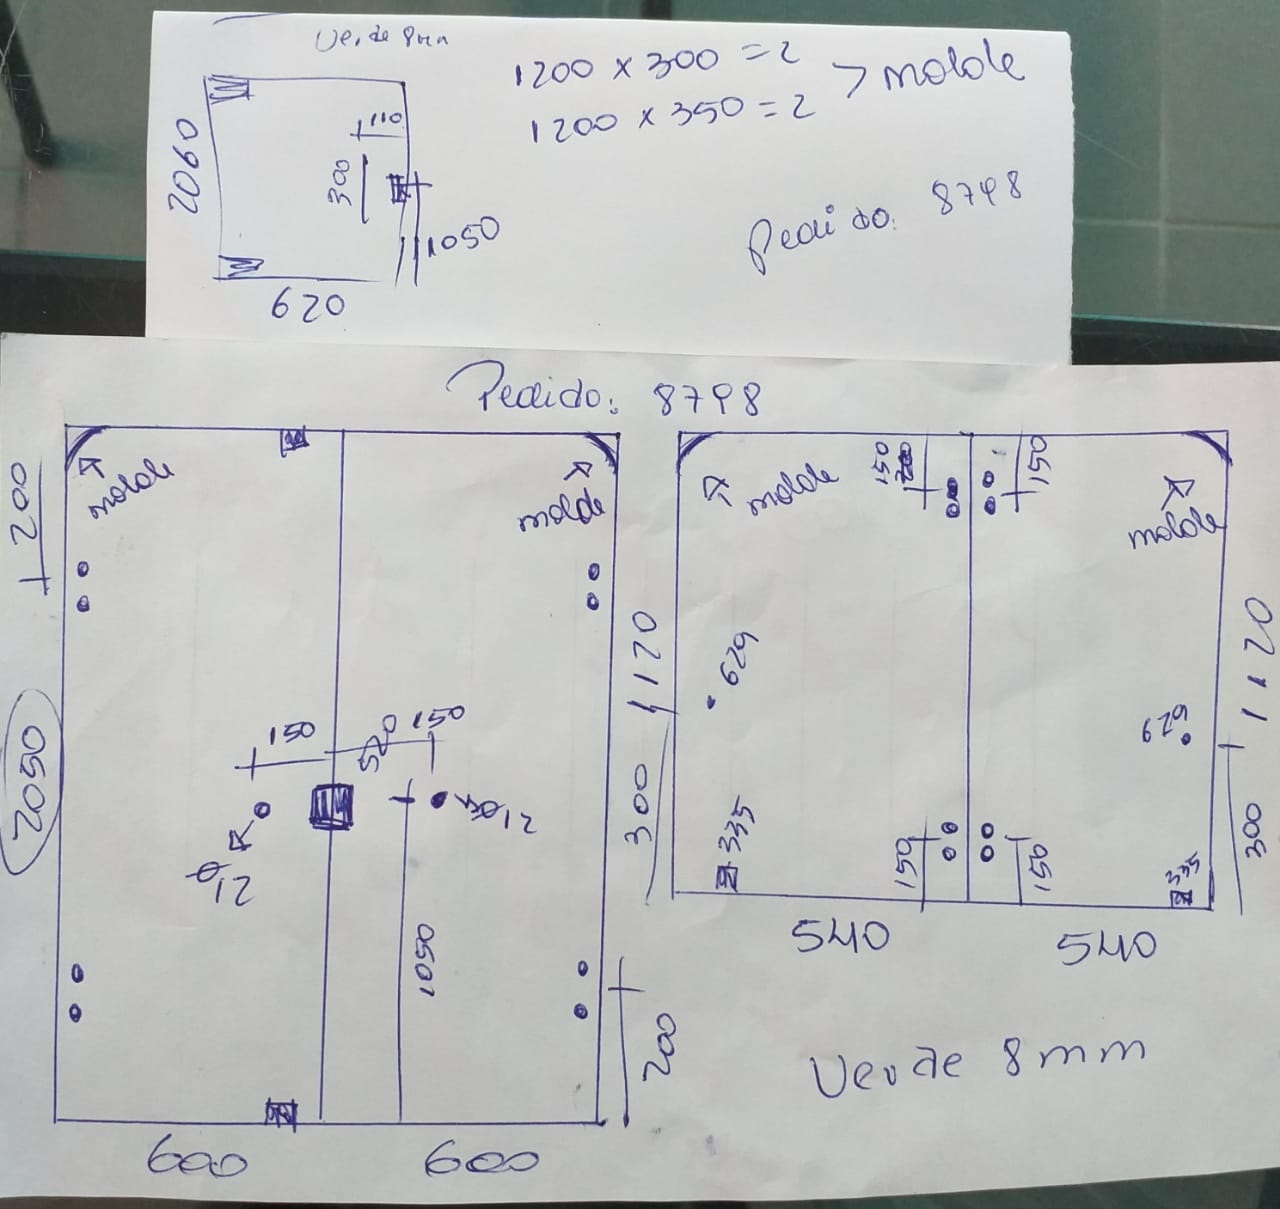 Verde 8mm
1200 x 300 = 2
1200 x 350 = 2
> molde
110
2060
300
1050
620
Pedido: 8798
Pedido: 8798
molde
molde
molde
molde
200
150
150
1120
1120
629
629
150
520
150
2050
300
300
335
335
Ø12
Ø12
150
150
1050
540
540
200
Verde 8mm
600
600